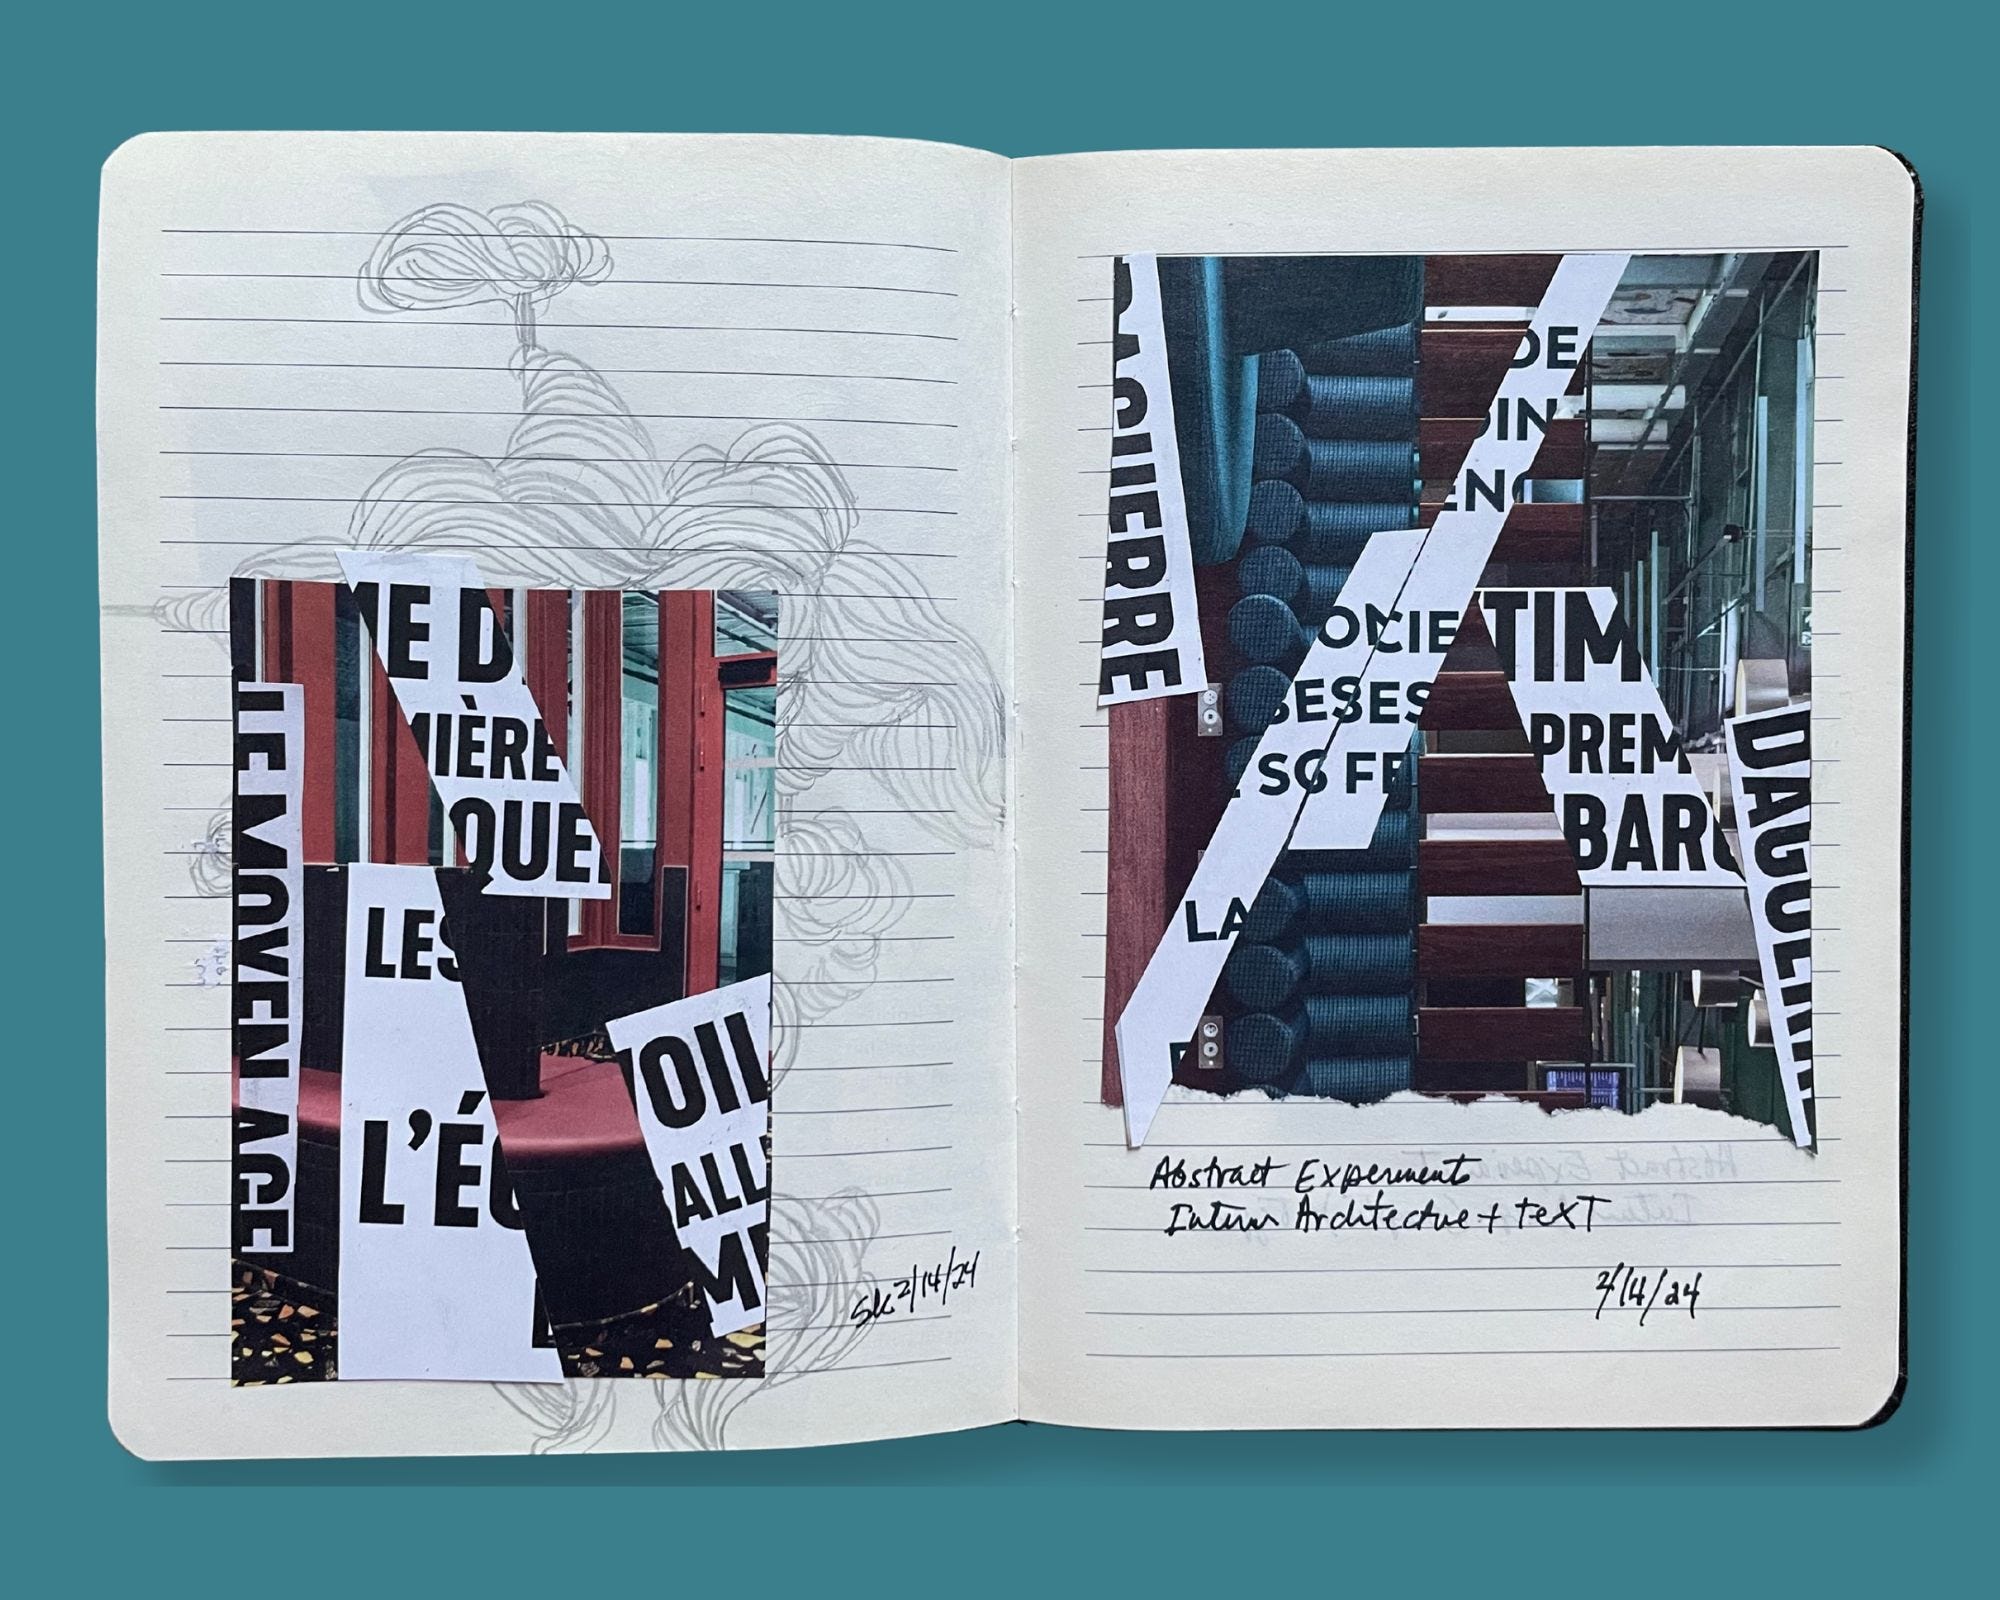 E D
IÈRE
QUE
LE MOYEN AGE
LES
L'É
OIL
ALL
M
Sk 2/14/24
AGUERRE
DE
IN
EN
OCIE
SESES
FE
TIM
PREM
BAR
DAGUE
LA
Abstract Experiments
Interior Architecture + text
2/14/24